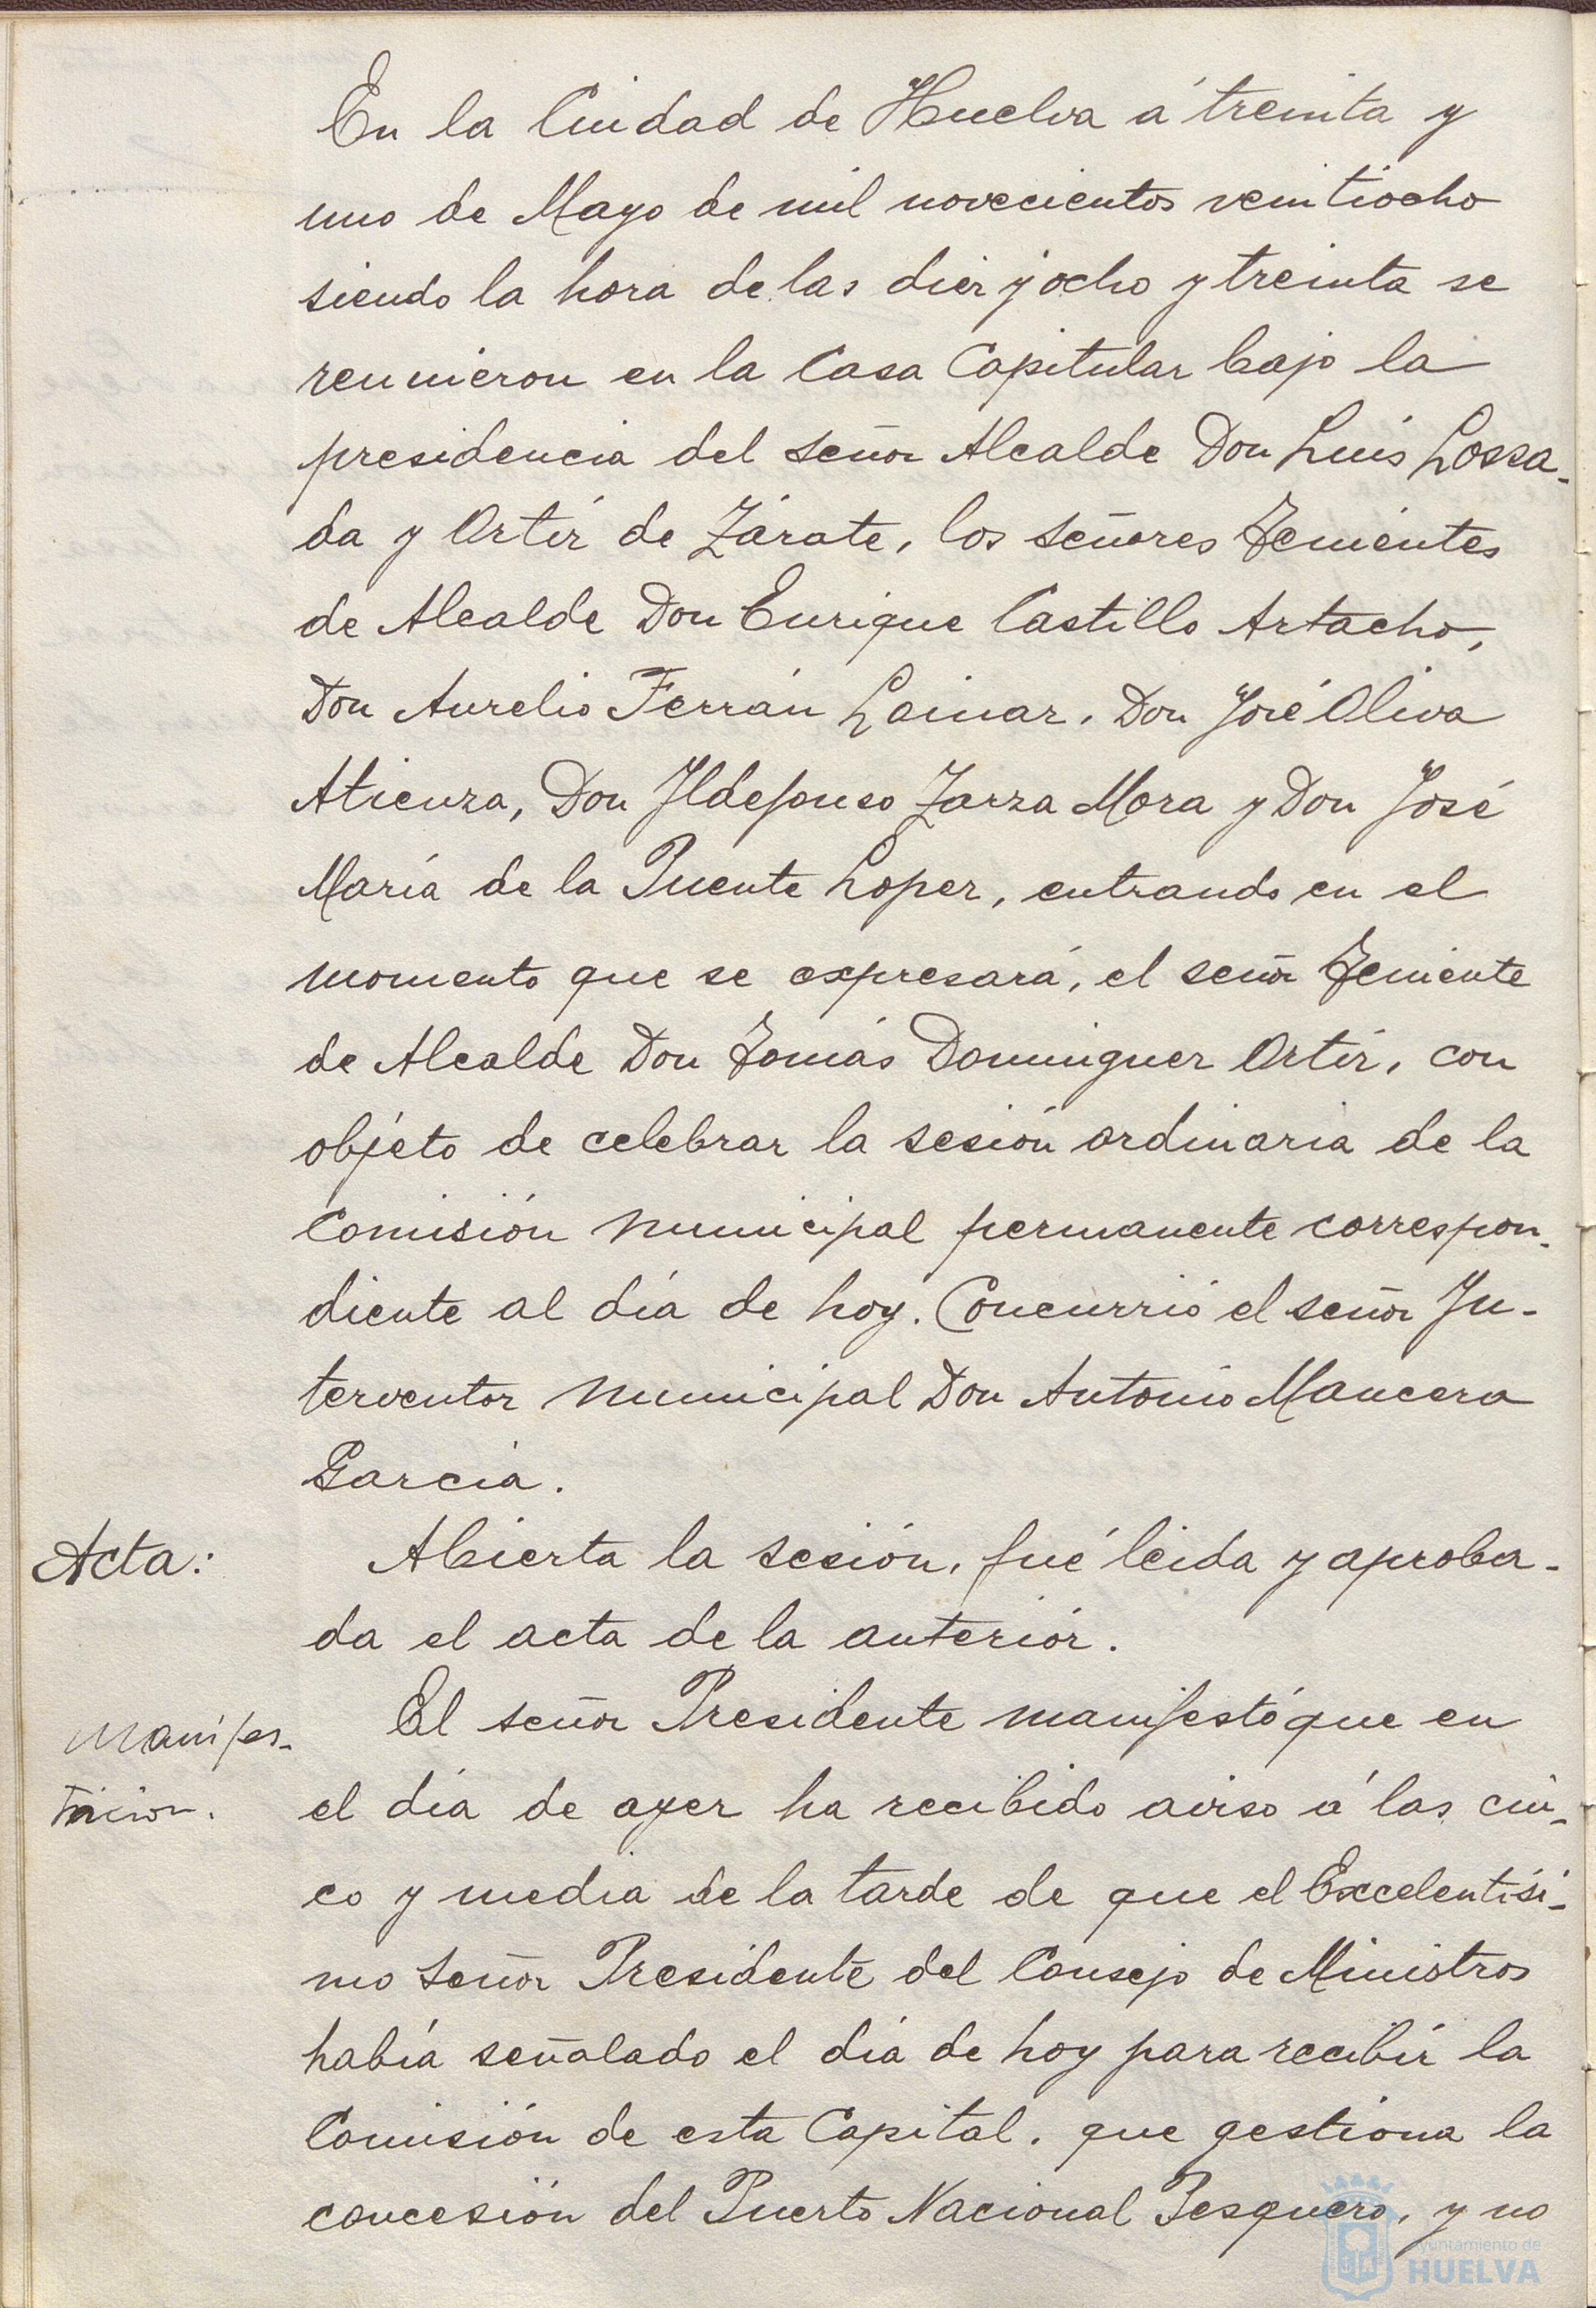 En la Ciudad de Huelva á treinta y
uno de Mayo de mil novecientos veintiocho
siendo la hora de las diez y ocho y treinta se
reunieron en la Casa Capitular bajo la
presidencia del señor Alcalde Don Luis Lossa-
da y Ortiz de Zárate, los señores Tenientes
de Alcalde Don Enrique Castillo Artacho,
Don Aurelio Ferrán Loinaz, Don José Oliva
Atienza, Don Ildefonso Zarza Mora y Don José
María de la Puente Lopez, entrando en el
momento que se expresará, el señor Teniente
de Alcalde Don Tomás Dominguez Ortiz, con
objeto de celebrar la sesión ordinaria de la
Comisión municipal permanente correspon-
diente al día de hoy. Concurrió el señor In-
terventor municipal Don Antonio Mancera
García.
Acta: Abierta la sesión, fué leida y aproba-
da el acta de la anterior.
Manifes- El señor Presidente manifestó que en
tacion. el día de ayer ha recibido aviso á las cin-
co y media de la tarde de que el Excelentísi-
mo señor Presidente del Consejo de Ministros
había señalado el día de hoy para recibir la
Comisión de esta Capital, que gestiona la
concesión del Puerto Nacional Pesquero, y no
Ayuntamiento de
HUELVA